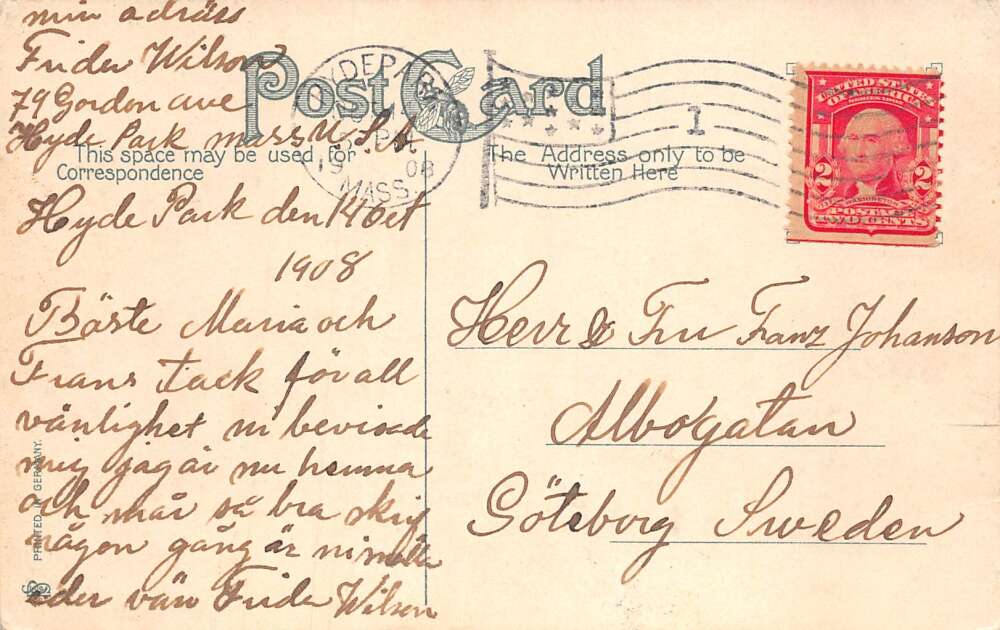 min adräss
Frider Wilson
79 Gordon ave
Hyde Park mass U.S.A.
Post Card
This space may be used for
Correspondence
The Address only to be
Written Here
HYDE PARK
19 08
MASS.
1
UNITED STATES
OF AMERICA
2 2
WASHINGTON
POSTAGE
TWO CENTS
Hyde Park den 14 Oct
1908
Bäste Maria och
Frans tack för all
vänlighet ni bevisade
mig jag är nu hemma
och mår så bra skrif
någon gång är ni snälla
eder vän Frida Wilson
Herr & Fru Franz Johanson
Albogatan
Göteborg Sweden
PRINTED IN GERMANY.